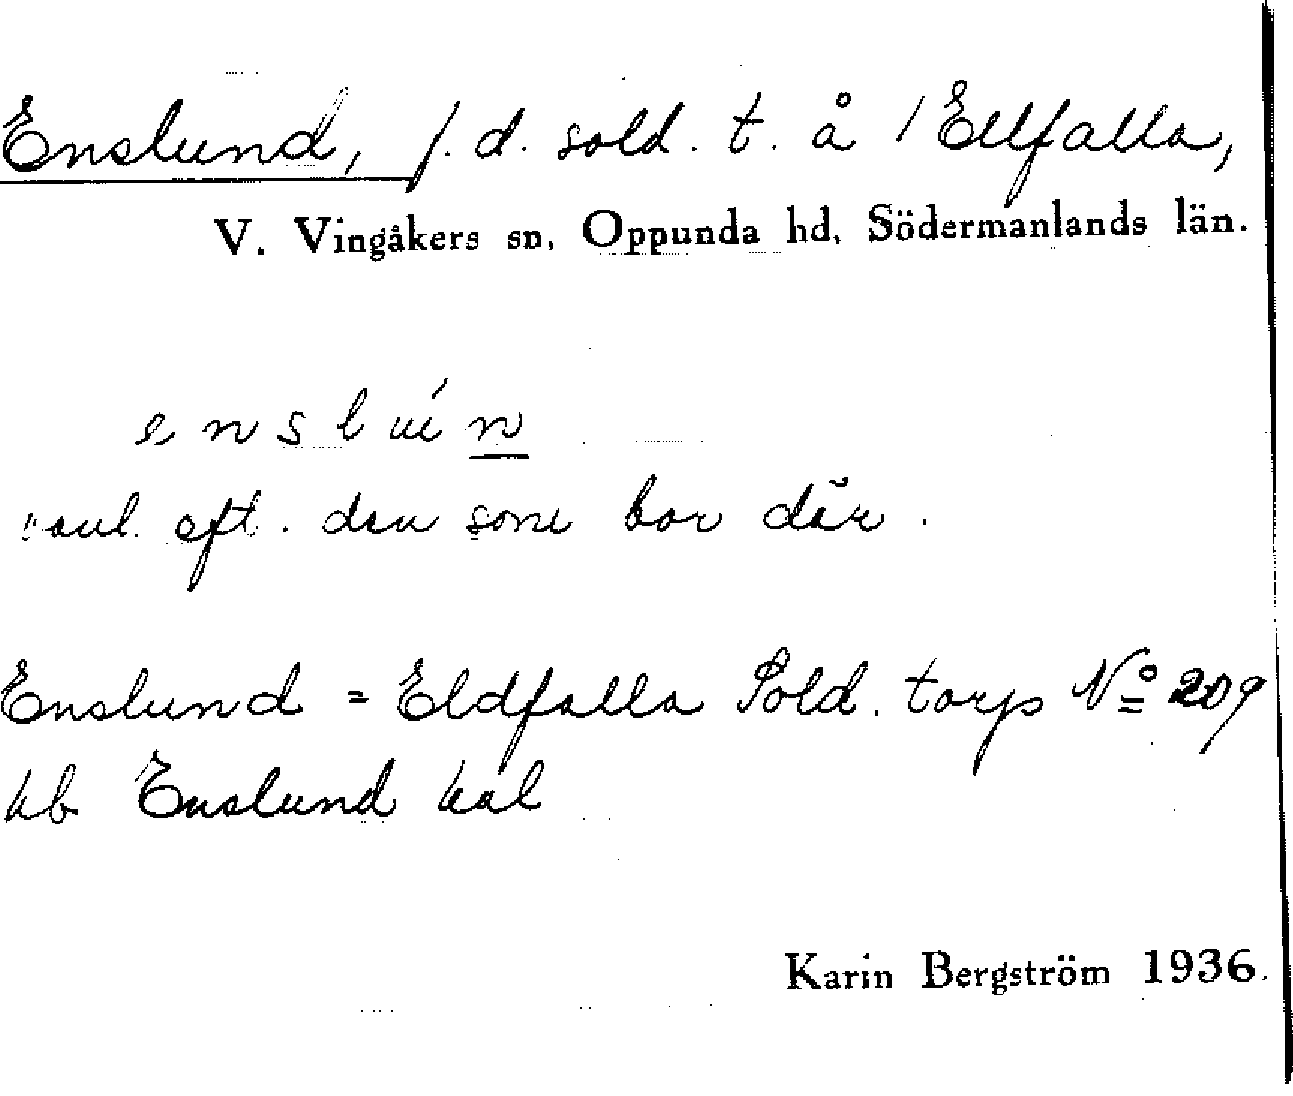 Enslund, f.d. sold. t. å 1 Ellfalla,
V. Vingåkers sn, Oppunda hd, Södermanlands län.
e n s l u n
eft. den som bor där.
Enslund = Eldfalla Sold. torp Nº 209
kb Enslund kal
Karin Bergström 1936.